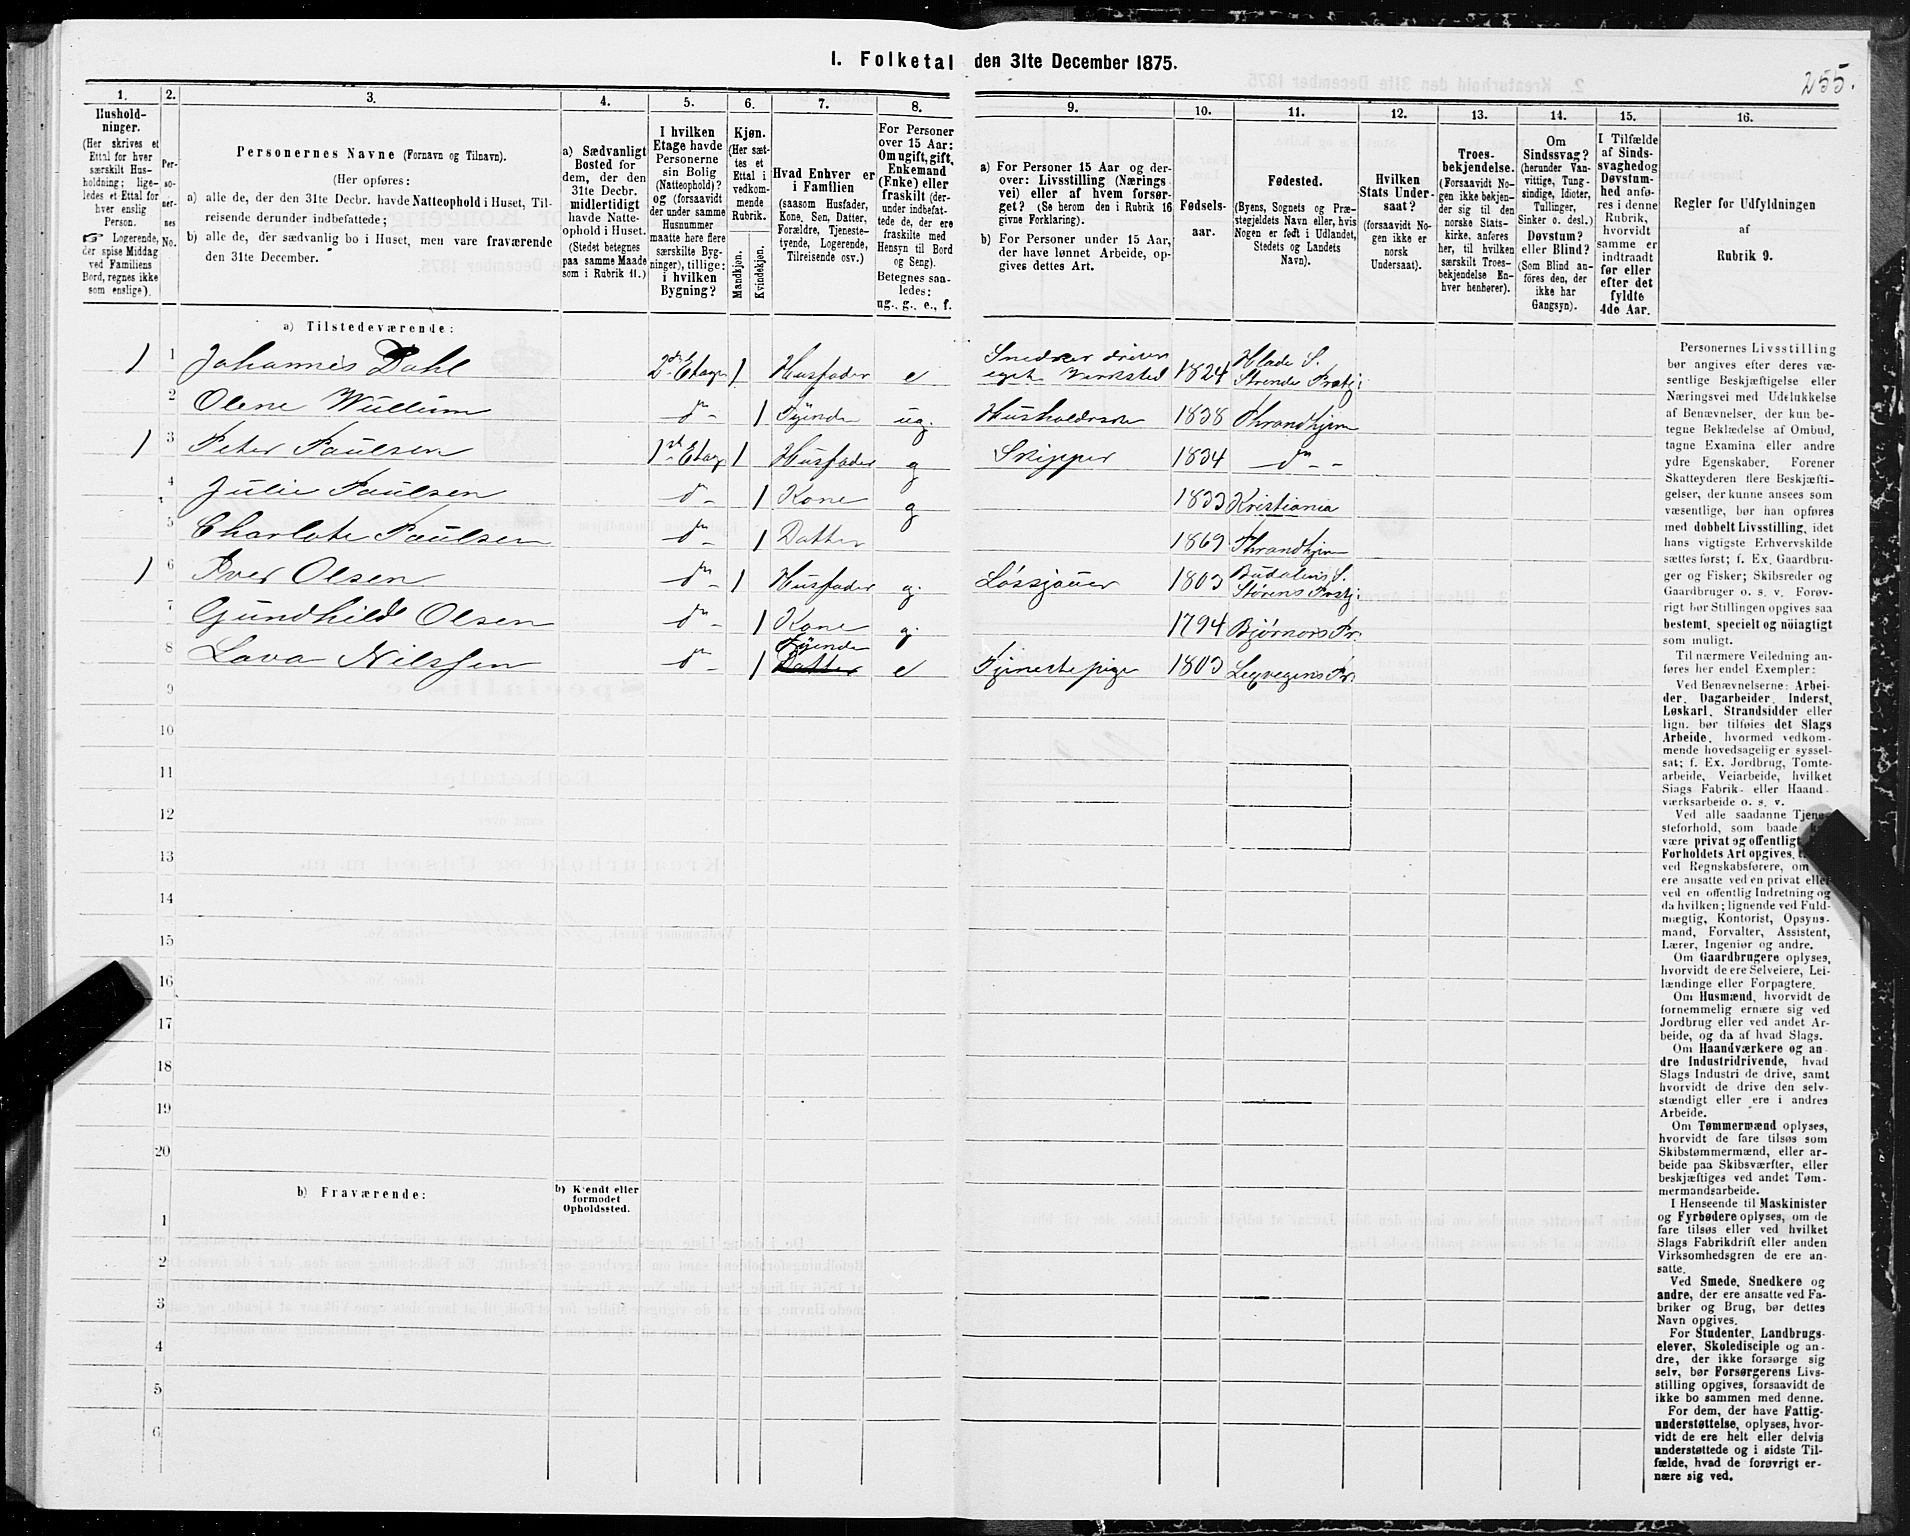 I. Folketal den 31te December 1875.
255.
1.
Hushold-
ninger.
(Her skrives et
Ettal for hver
særskilt Hus-
holdning; lige-
ledes et Ettal for
hver enslig
Person.
☞ Logerende,
der spise Middag
ved Familiens
Bord, regnes ikke
som enslige).
2.
Per-
so-
ner-
nes
No.
3.
Personernes Navne (Fornavn og Tilnavn).
(Her opføres:
a) alle de, der den 31te Decbr. havde Natteophold i Huset, Til-
reisende derunder indbefattede;
b) alle de, der sædvanlig bo i Huset, men vare fraværende
den 31te December.
4.
a) Sædvanligt
Bosted for
dem, der den
31te Decbr.
midlertidigt
havde Natte-
ophold i Huset.
(Stedet betegnes
paa samme Maade
som i Rubrik 11.)
5.
I hvilken
Etage havde
Personerne
sin Bolig
(Natteophold)?
og (forsaavidt
der under samme
Husnummer
maatte høre flere
særskilte Byg-
ninger), tillige:
i hvilken
Bygning?
6.
Kjøn.
(Her sæt-
tes et
Ettal i
vedkom-
mende
Rubrik.
Mandkjøn.
Kvindekjøn.
7.
Hvad Enhver er
i Familien
(saasom Husfader,
Kone, Søn, Datter,
Forældre, Tjeneste-
tyende, Logerende,
Tilreisende osv.)
8.
For Personer
over 15 Aar:
Om ugift, gift,
Enkemand
(Enke) eller
fraskilt (der-
under indbefat-
tede de, der ere
fraskilte med
Hensyn til Bord
og Seng).
Betegnes saa-
ledes:
ug., g., e., f.
9.
a) For Personer 15 Aar og der-
over: Livsstilling (Nærings
vei) eller af hvem forsør-
get? (Se herom den i Rubrik 16
givne Forklaring).
b) For Personer under 15 Aar,
der have lønnet Arbeide, op-
gives dettes Art.
10.
Fødsels-
aar.
11.
Fødested.
(Byens, Sognets og Præ-
stegjeldets Navn eller, hvis
Nogen er født i Udlandet,
Stedets og Landets
Navn).
12.
Hvilken
Stats Under-
saat?
(forsaavidt No-
gen ikke er
norsk
Undersaat).
13.
Troes-
bekjendelse.
(Forsaavidt No-
gen ikke bekjen-
der sig til den
norske Stats-
kirke, anføres
her, til hvilken
særskilt Troes-
bekjendelse En-
hver henhører).
14.
Om
Sindssvag?
(herunder Van-
vittige, Tung-
sindige, Idioter,
Tullinger,
Sinker o. desl.)
Døvstum?
eller Blind?
(Som Blind an-
föres den, der
ikke har
Gangsyn).
15.
I Tilfælde
af Sinds-
svaghed og
Døvstum-
hed anfø-
res i denne
Rubrik,
hvorvidt
samme er
indtraadt
før eller
efter det
fyldte
4de Aar.
16.
Regler for Udfyldningen
af
Rubrik 9.
a) Tilstedeværende:
1 1 Johannes Dahl 2d Etage 1 Husfader e Snedker driver eget Verksted 1824 Hlade S. Strinde Prstj:
2 Olene Wullum do 1 Tyende ug. Husholderske 1838 Throndhjem
1 3 Peter Paulsen 1ste Etage 1 Husfader g Skipper 1834 do
4 Julie Paulsen do 1 Kone g 1833 Kristiania
5 Charlote Paulsen do 1 Datter 1869 Throndhjem
1 6 Iver Olsen do 1 Husfader g. Løssjouer 1803 Budalens S. Størens Prstj:
7 Gundhild Olsen do 1 Kone g. 1794 Bjørnørs Pr.
8 Lava Nilssen do 1 Tyende Datter e Tjenestepige 1803 Pr.
9
10
11
12
13
14
15
16
17
18
19
20
b) Fraværende:
b) Kjendt eller
formodet
Opholdssted.
1
2
3
4
5
6
Personernes Livsstilling
bør angives efter deres væ-
sentlige Beskjæftigelse eller
Næringsvei med Udelukkelse
af Benævnelser, der kun be-
tegne Beklædelse af Ombud,
tagne Examina eller andre
ydre Egenskaber. Forener
Skatteyderen flere Beskjæfti-
gelser, der kunne ansees som
væsentlige, bør han opføres
med dobbelt Livsstilling, idet
hans vigtigste Erhvervskilde
sættes først; f. Ex. Gaardbru-
ger og Fisker; Skibsreder og
Gaardbruger o. s. v. Forøv-
rigt bør Stillingen opgives saa
bestemt, specielt og nøiagtigt
som muligt.
Til nærmere Veiledning an-
føres her endel Exempler:
Ved Benævnelserne: Arbei-
der, Dagarbeider, Inderst,
Løskarl, Strandsidder eller
lign. bør tilføies det Slags
Arbeide, hvormed vedkom-
mende hovedsagelig er syssel-
sat; f. Ex. Jordbrug, Tomte-
arbeide, Veiarbeide, hvilket
Slags Fabrik- eller Haand-
værksarbeide o. s. v.
Ved alle saadanne Tjene-
steforhold, som baade
være privat og offentligt
Forholdets Art opgives,
ved Regnskabsførere, om
ere ansatte ved en privat eller
ved en offentlig Indretning og
da hvilken; lignende ved Fuld-
mægtig, Kontorist, Opsyns-
mand, Forvalter, Assistent,
Lærer, Ingeniør og andre.
Om Gaardbrugere oplyses,
hvorvidt de ere Selveiere, Lei-
lændinge eller Forpagtere.
Om Husmænd, hvorvidt de
fornemmelig ernære sig ved
Jordbrug eller ved andet Ar-
beide, og da af hvad Slags.
Om Haandværkere og an-
dre Industridrivende, hvad
Slags Industri de drive, samt
hvorvidt de drive den selv-
stændigt eller ere i andres
Arbeide.
Om Tømmermænd oplyses,
hvorvidt de fare tilsøs som
Skibstømmermænd, eller ar-
beide paa Skibsværfter, eller
beskjæftiges ved andet Tøm-
mermandsarbeide.
I Henseende til Maskinister
og Fyrbødere oplyses, om de
fare tilsøs eller ved hvilket
Slags Fabrikdrift eller anden
Virksomhedsgren de ere an-
satte.
Ved Smede, Snedkere og
andre, der ere ansatte ved Fa-
briker og Brug, bør dettes
Navn opgives.
For Studenter, Landbrugs-
elever, Skoledisciple og an-
dre, der ikke forsørge sig
selv, bør Forsørgerens Livs-
stilling opgives, forsaavidt de
ikke bo sammen med denne.
For dem, der have Fattig-
understøttelse, oplyses, hvor-
vidt de ere helt eller delvis
understøttede og i sidste Til-
fælde, hvad de forøvrigt er-
nære sig ved.